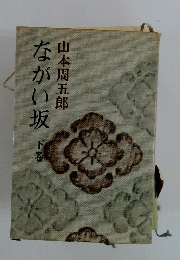 山本周五郎
ながい坂
下巻